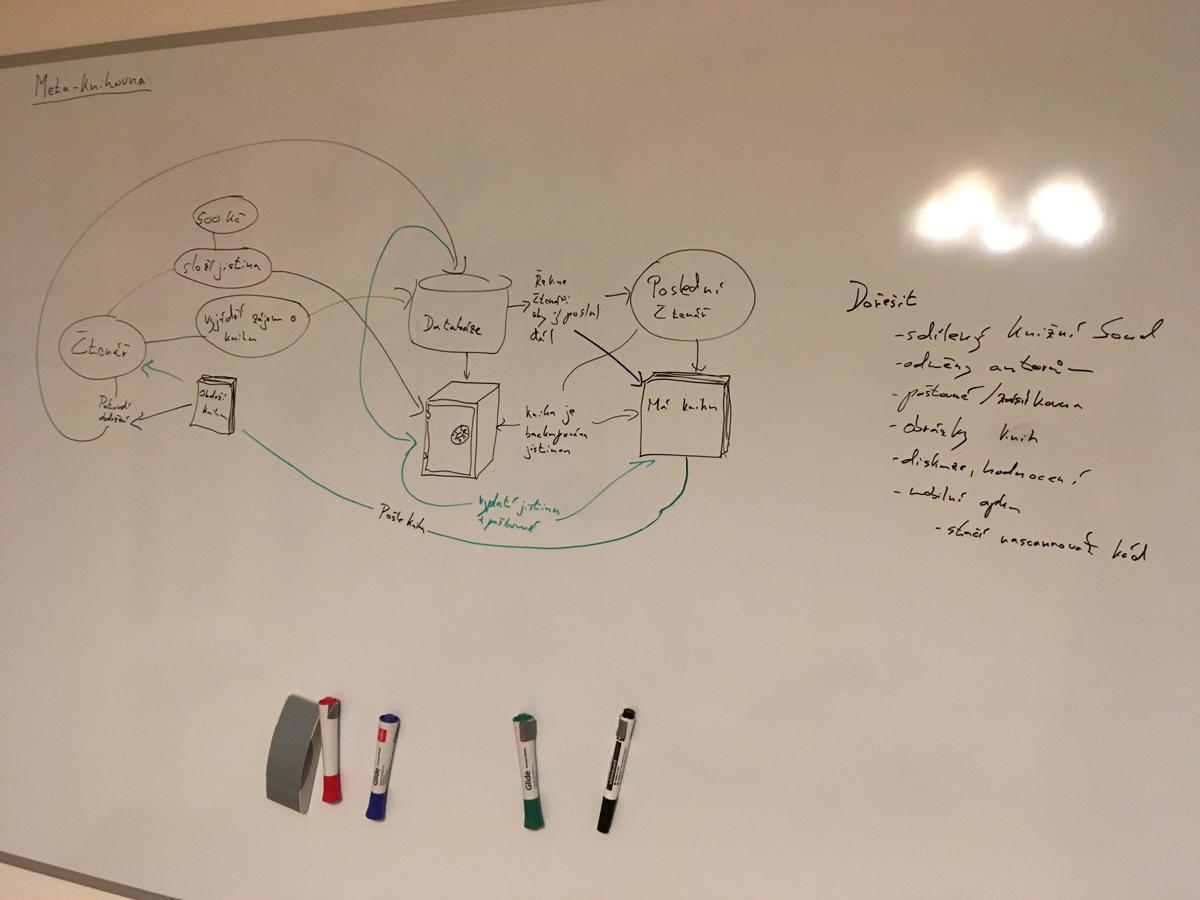 Meta-knihovna
500 Kč
složí jistinu
Vyjádří zájem o
knihu
Čtenář
Potvrdí
obdržení
Obdrží
knihu
Databáze
Řekne
čtenáři
aby ji poslal
dál
Poslední
čtenář
Má knihu
kniha je
backupována
jistinou
vyplatí jistinu
+ poštovné
Pošle knihu
Dořešit
- sdílený knižní fond
- odměny autorům
- poštovné / zásilkovna
- obrázky knih
- diskuze, hodnocení
- mobilní apka
- stačí nascannovat kód
Glide
Glide